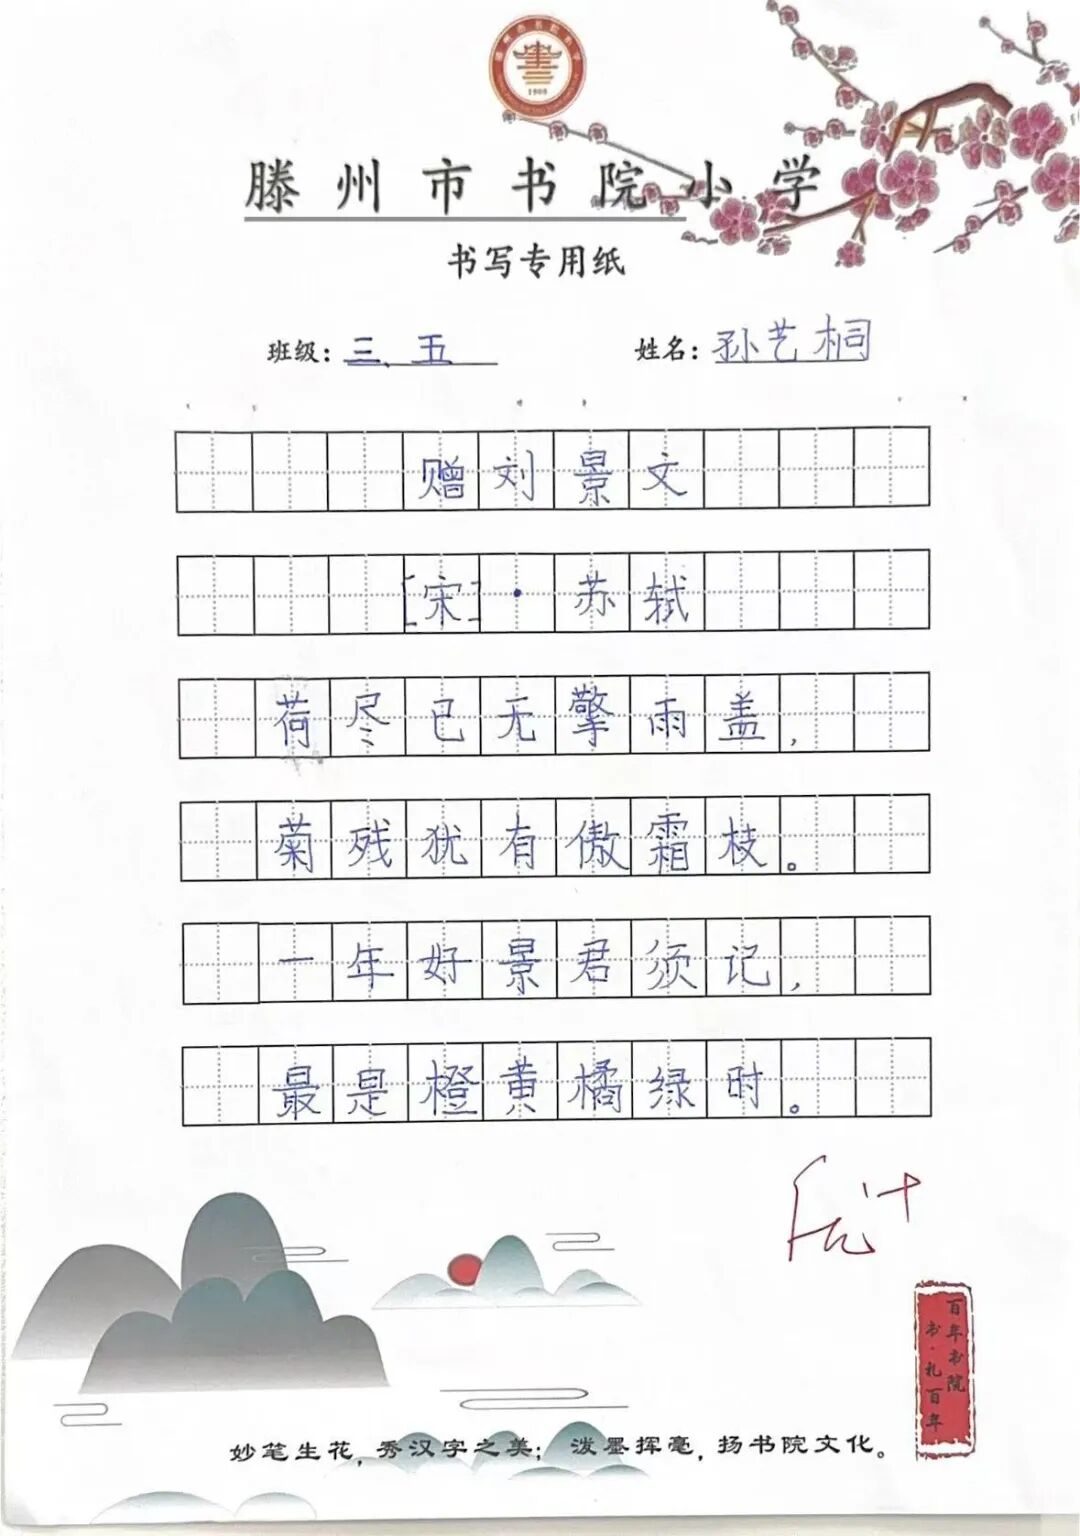 1909
滕州市书院小学
书写专用纸
班级：三、五 姓名：孙艺桐
赠刘景文
[宋]·苏轼
荷尽已无擎雨盖，
菊残犹有傲霜枝。
一年好景君须记，
最是橙黄橘绿时。
优+
百年书院
书·礼百年
妙笔生花，秀汉字之美； 泼墨挥毫，扬书院文化。